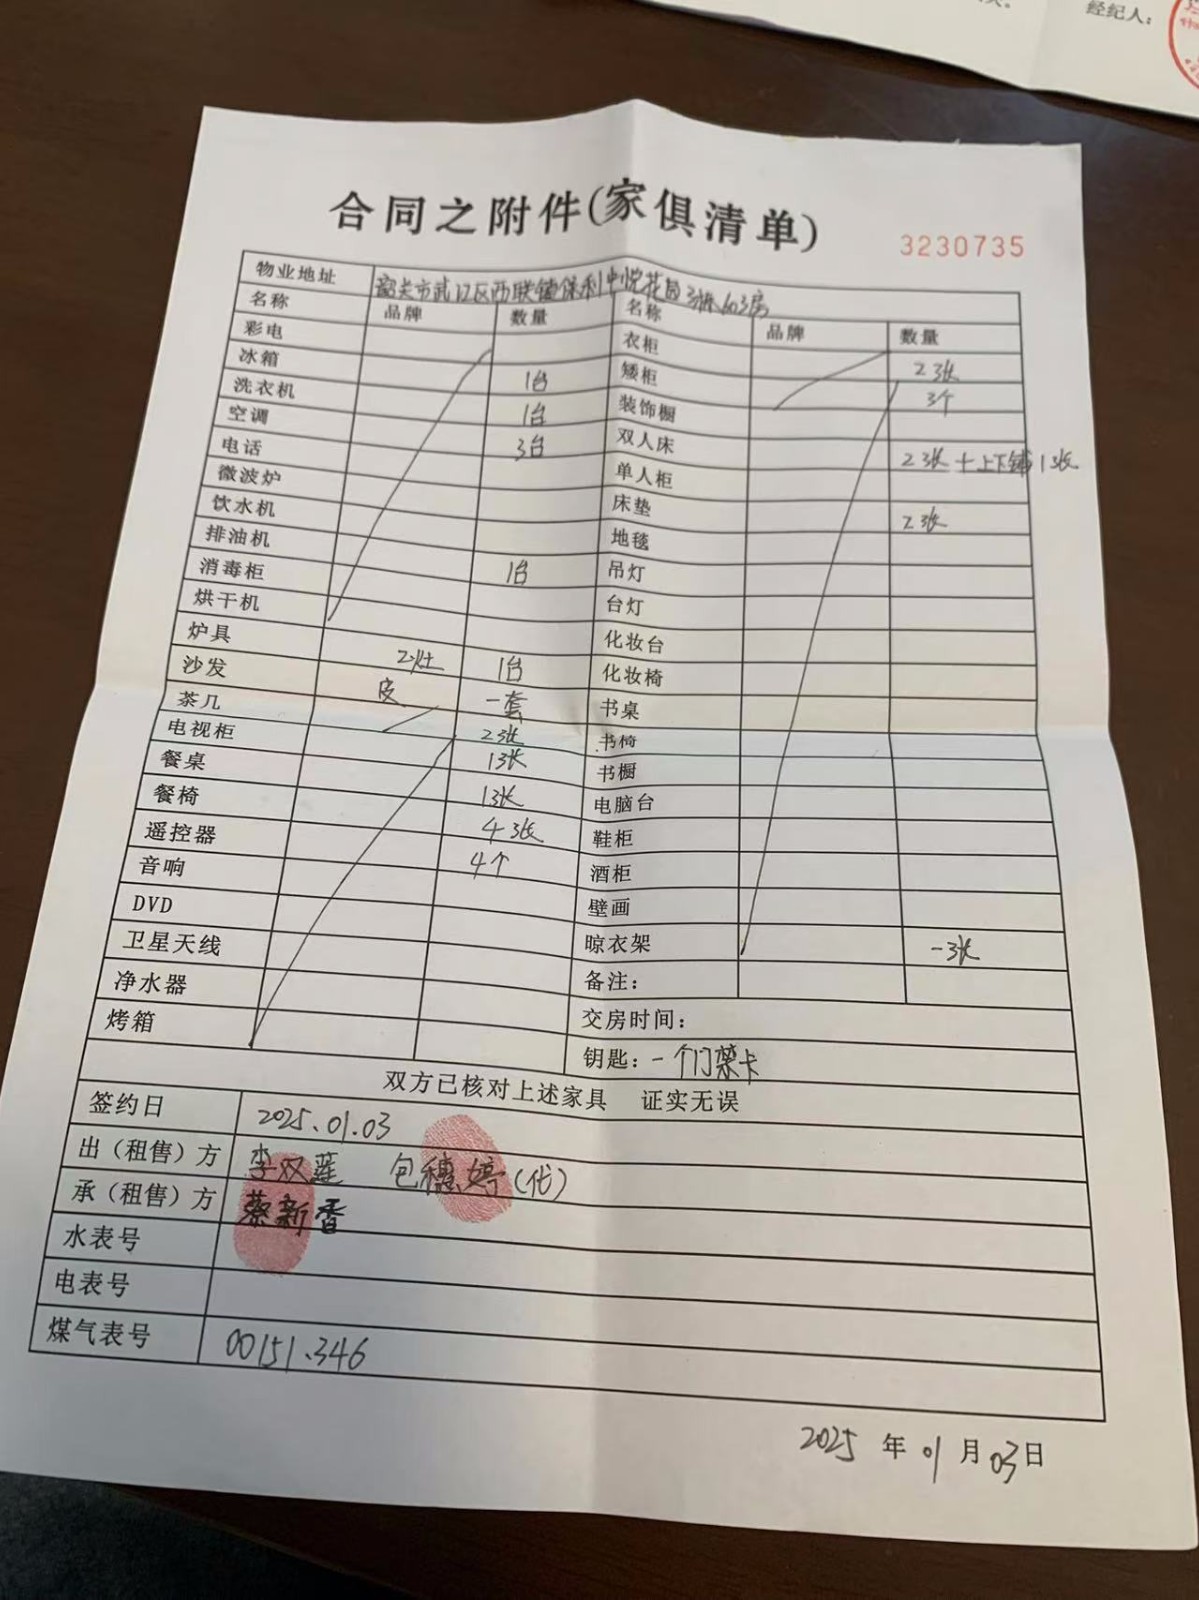 经纪人：
合同之附件(家俱清单)
3230735
物业地址 韶关市武江区西联镇保利中悦花园3栋603房
名称 品牌 数量 名称 品牌 数量
彩电 衣柜 2张
冰箱 1台 矮柜 3个
洗衣机 1台 装饰橱
空调 3台 双人床 2张+上下铺1张
电话 单人柜
微波炉 床垫 2张
饮水机 地毯
排油机 1台 吊灯
消毒柜 台灯
烘干机 化妆台
炉具 2灶 1台 化妆椅
沙发 皮 一套 书桌
茶几 2张 书椅
电视柜 1张 书橱
餐桌 1张 电脑台
餐椅 4张 鞋柜
遥控器 4个 酒柜
音响 壁画
DVD 晾衣架 一张
卫星天线 备注：
净水器 交房时间：
烤箱 钥匙：一个门禁卡
双方已核对上述家具 证实无误
签约日 2025.01.03
出（租售）方 李双莲 包穗婷(代)
承（租售）方 蔡新香
水表号
电表号
煤气表号 00151.346
2025 年 01 月 03 日